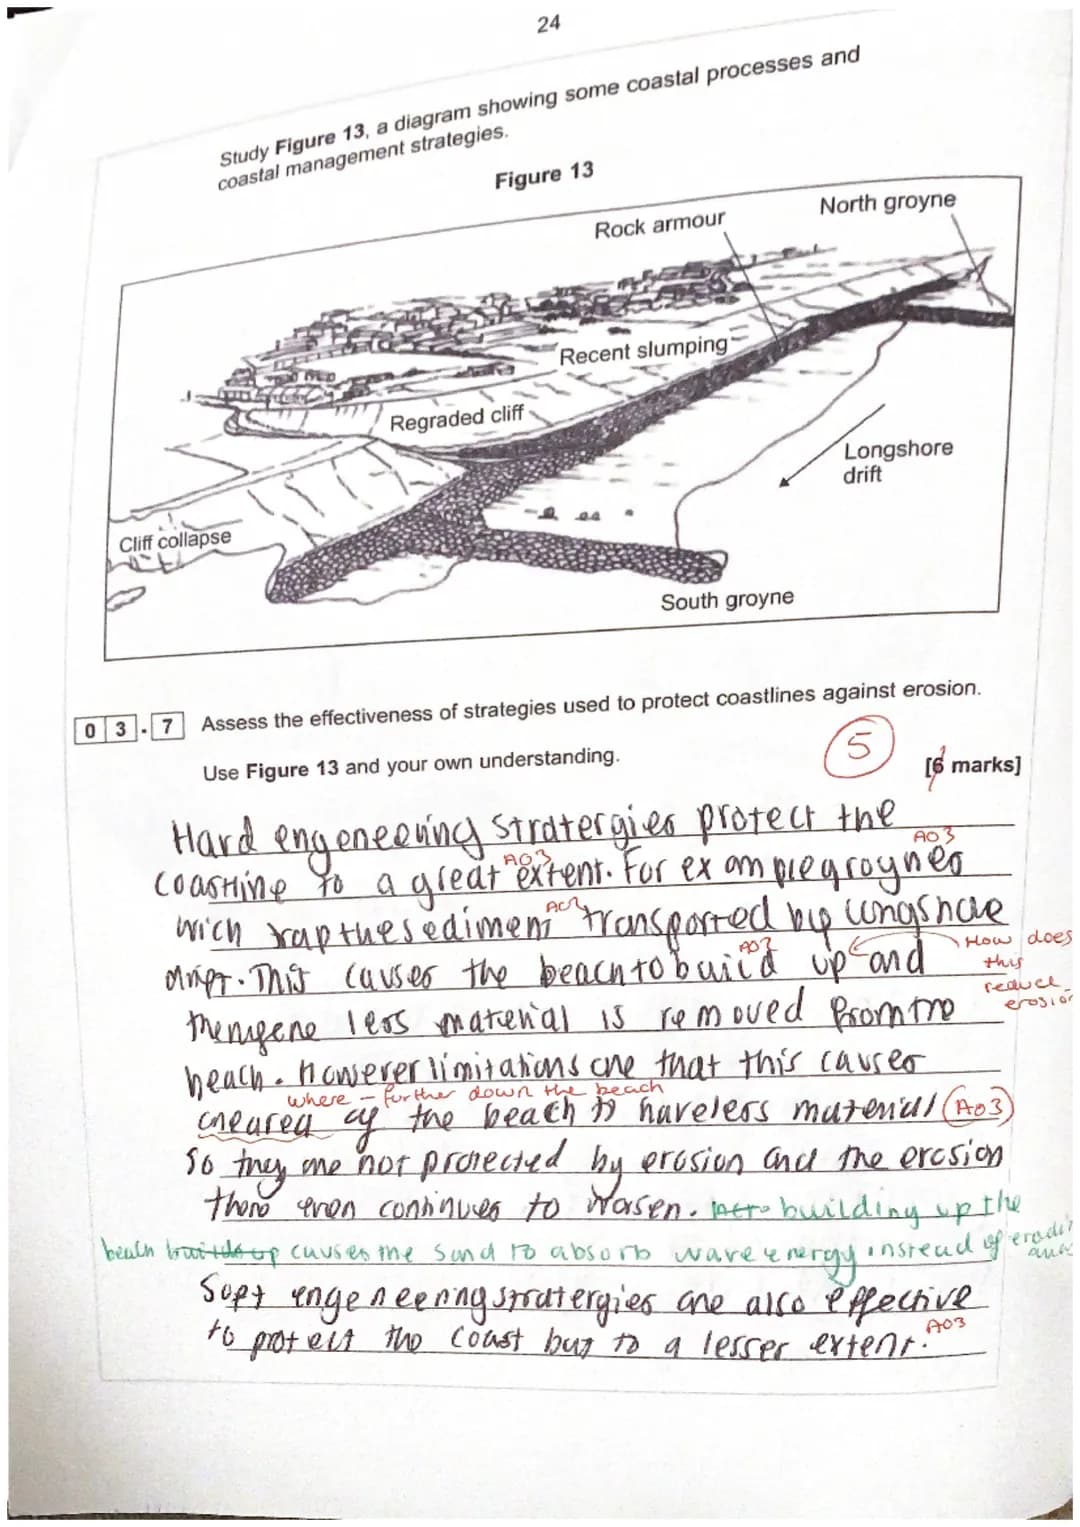 24
Study Figure 13, a diagram showing some coastal processes and
coastal management strategies.
Figure 13
Rock armour
North groyne
Recent slumping
Regraded cliff
Longshore
drift
Cliff collapse
South groyne
0 3 . 7 Assess the effectiveness of strategies used to protect coastlines against erosion.
5
Use Figure 13 and your own understanding.
[6 marks]
Hard engeneering stratergies protect the
AO3
AO3
coastline to a great extent. For example groynes
AO2
wich trap the sediment transported by longshore
AO2
How does
this
reduce
erosion
drift. This causes the beach to build up and
less material is removed from the
beach. however limitations are that this causes
where - further down the beach
of the beach to have less material AO3
so they are not protected by erosion and the erosion
continues to worsen. building up the
beach causes the sand to absorb wave energy instead of
Soft engeneering stratergies are also effective
AO3
to protect the coast but to a lesser extent.